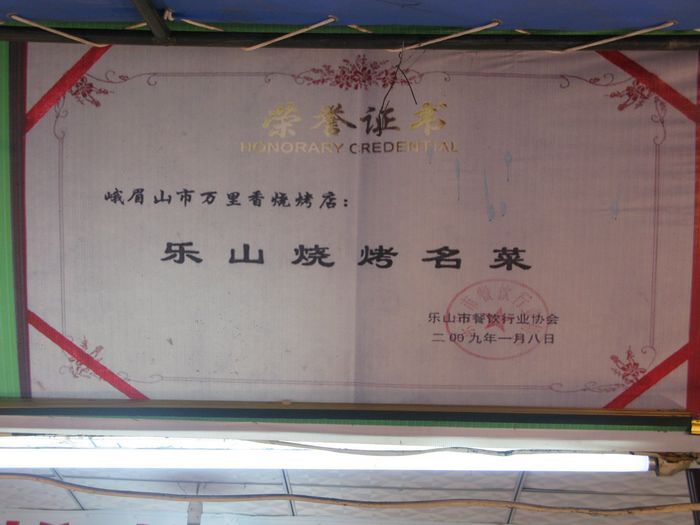 荣誉证书
HONORARY CREDENTIAL
峨眉山市万里香烧烤店：
乐山烧烤名菜
乐山市餐饮行业协会
二00九年一月八日